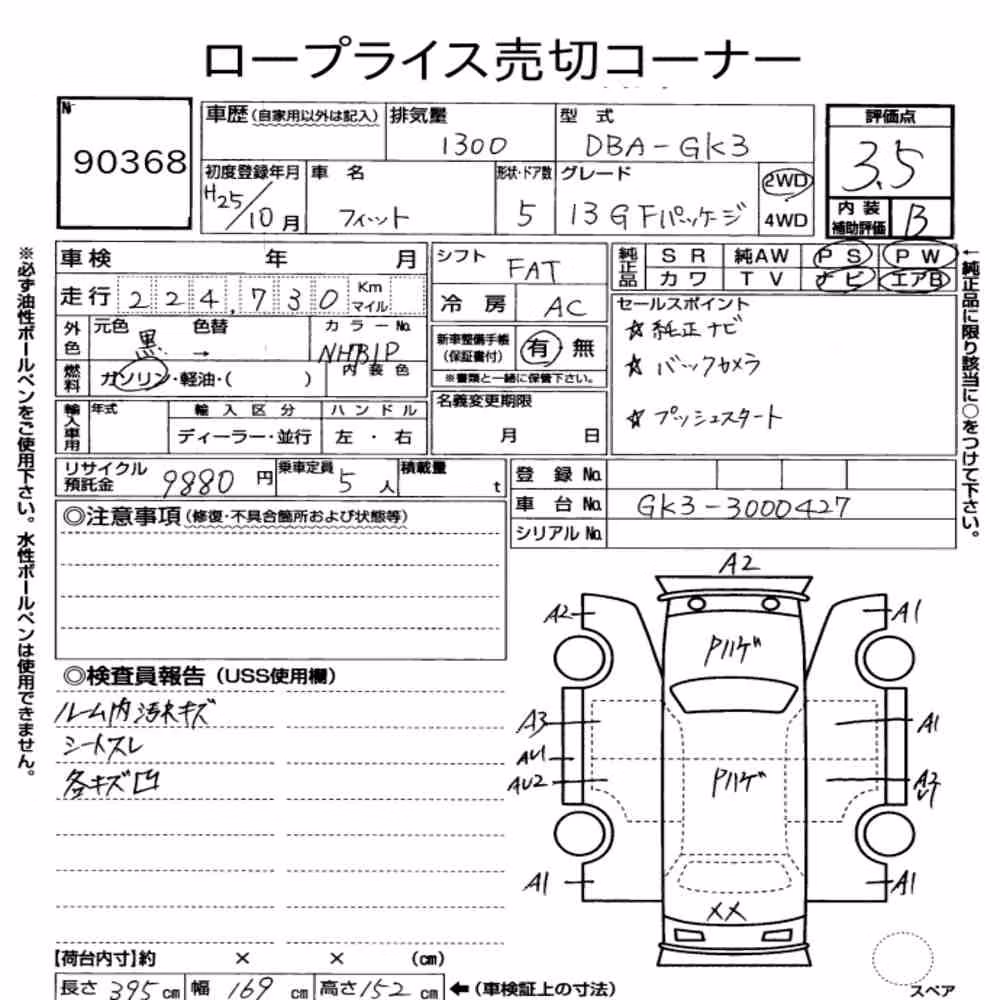 ロープライス売切コーナー
№ 90368
車歴(自家用以外は記入) 排気量 1300 型式 DBA-GK3 評価点 3.5
初度登録年月 H25/10月 車名 フィット 形状・ドア数 5 グレード 13G Fパッケージ 2WD 4WD
内装補助評価 B
車検 年 月 シフト FAT 純正品 SR 純AW PS PW
カワ TV ナビ エアB
走行 224,730 Km マイル 冷房 AC
セールスポイント
☆純正ナビ
☆バックカメラ
☆プッシュスタート
外色 元色 黒 → 色替 カラーNo. NH731P
新車整備手帳(保証書付) 有 無
※書類と一緒に保管下さい。
燃料 ガソリン・軽油・( ) 内装色
名義変更期限 月 日
輸入車用 年式 輸入区分 ハンドル
ディーラー・並行 左・右
リサイクル預託金 9880円 乗車定員 5人 積載量 t
登録No.
車台No. GK3-3000427
シリアルNo.
◎注意事項(修復・不具合箇所および状態等)
◎検査員報告(USS使用欄)
ルーム内汚れキズ
シートスレ
各キズ凹
A2
A2 A1
Pハゲ
A3 A1
AU1
AU2 Pハゲ A2
A1 A1
XX
【荷台内寸】約 × × (cm)
長さ 395cm 幅 169cm 高さ 152cm ←(車検証上の寸法)
スペア
※必ず油性ボールペンをご使用下さい。水性ボールペンは使用できません。
←純正品に限り該当に○をつけて下さい。